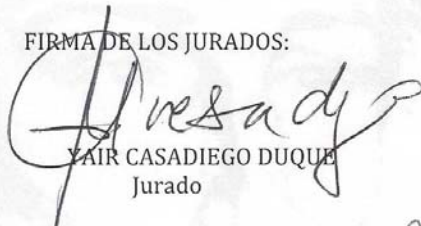 FIRMA DE LOS JURADOS:
YAIR CASADIEGO DUQUE
Jurado